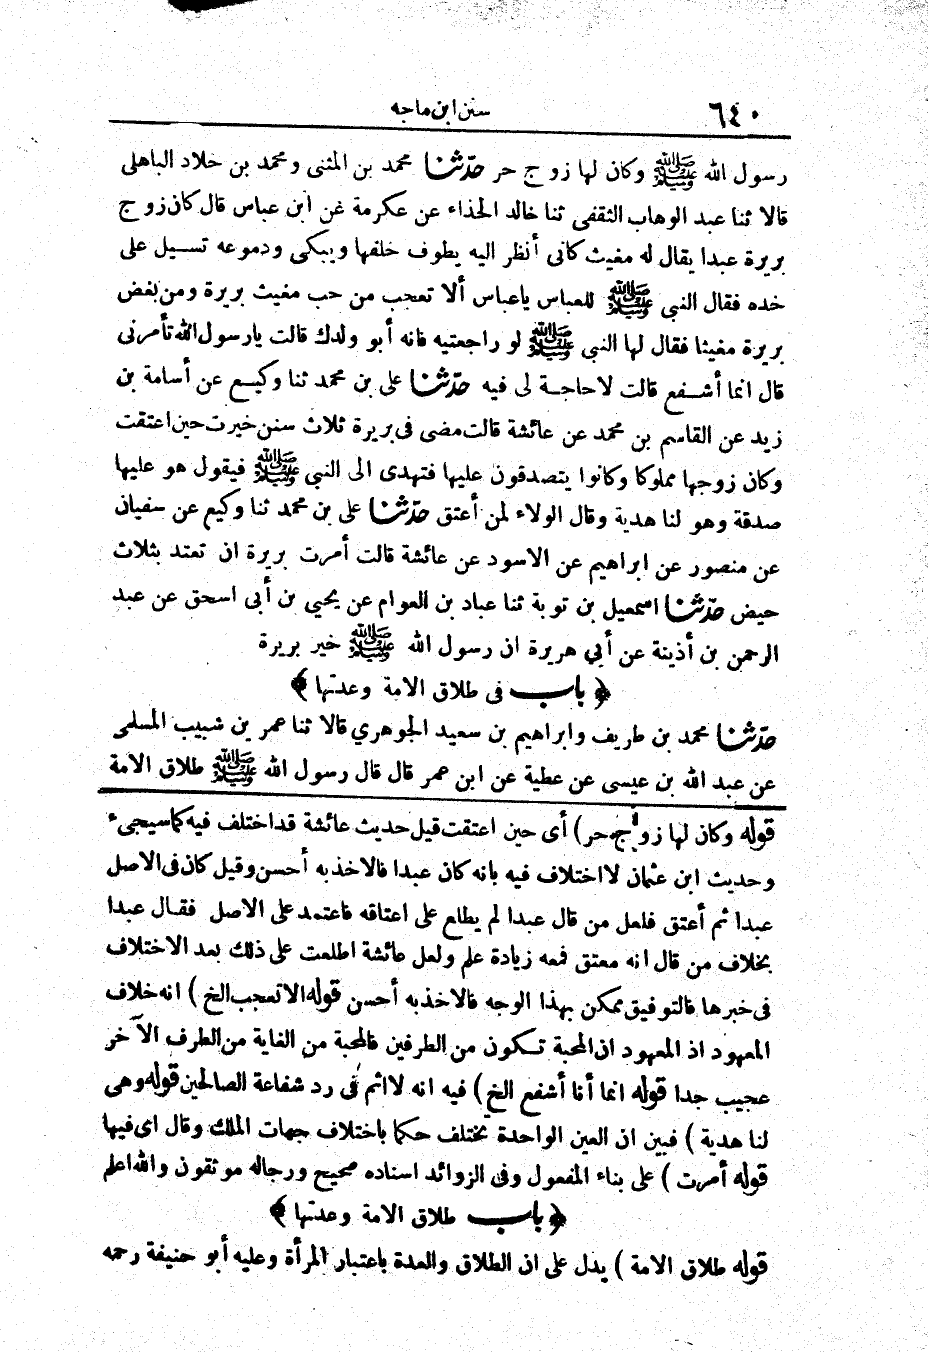 ٦٤٠
سنن ابن ماجه
رسول الله ﷺ وكان لها زوج حر حدّثنا محمد بن المثنى ومحمد بن خلاد الباهلى
قالا ثنا عبد الوهاب الثقفى ثنا خالد الحذاء عن عكرمة عن ابن عباس قال كان زوج
بريرة عبدا يقال له مغيث كانى أنظر اليه يطوف خلفها ويبكى ودموعه تسيل على
خده فقال النبى ﷺ للعباس ياعباس ألا تعجب من حب مغيث بريرة ومن بغض
بريرة مغيثا فقال لها النبى ﷺ لو راجعتيه فانه أبو ولدك قالت يارسول الله تأمرنى
قال انما أشفع قالت لا حاجة لى فيه حدّثنا على بن محمد ثنا وكيع عن أسامة بن
زيد عن القاسم بن محمد عن عائشة قالت مضى فى بريرة ثلاث سنن خيرت حين اعتقت
وكان زوجها مملوكا وكانوا يتصدقون عليها فتهدى الى النبى ﷺ فيقول هو عليها
صدقة وهو لنا هدية وقال الولاء لمن أعتق حدّثنا على بن محمد ثنا وكيع عن سفيان
عن منصور عن ابراهيم عن الاسود عن عائشة قالت أمرت بريرة ان تعتد بثلاث
حيض حدّثنا اسمعيل بن توبة ثنا عباد بن العوام عن يحيى بن أبى اسحق عن عبد
الرحمن بن أذينة عن أبي هريرة ان رسول الله ﷺ خير بريرة
﴿ باب فى طلاق الامة وعدتها ﴾
حدّثنا محمد بن طريف وابراهيم بن سعيد الجوهري قالا ثنا عمر بن شبيب المسلمى
عن عبد الله بن عيسى عن عطية عن ابن عمر قال قال رسول الله ﷺ طلاق الامة
قوله وكان لها زوج حر) أى حين اعتقت قيل حديث عائشة قد اختلف فيه كما سيجىء
وحديث ابن عثمان لا اختلاف فيه بانه كان عبدا فالاخذ به أحسن وقيل كان فى الاصل
عبدا ثم أعتق فلعل من قال عبدا لم يطلع على اعتاقه فاعتمد على الاصل فقال عبدا
بخلاف من قال انه معتق فمعه زيادة علم ولعل عائشة اطلعت على ذلك بعد الاختلاف
فى خبرها فالتوفيق ممكن بهذا الوجه فالاخذ به أحسن قوله الا تعجب الخ) انه خلاف
المعهود اذ المعهود ان المحبة تكون من الطرفين فالمحبة من الغاية من الطرف الآخر
عجيب جدا قوله انما أنا أشفع الخ) فيه انه لا اثم فى رد شفاعة الصالحين قوله وهى
لنا هدية) فبين ان العين الواحدة يختلف حكما باختلاف جهات الملك وقال اى فيها
قوله أمرت) على بناء المفعول وفى الزوائد اسناده صحيح ورجاله موثقون والله اعلم
﴿ باب طلاق الامة وعدتها ﴾
قوله طلاق الامة) يدل على ان الطلاق والعدة باعتبار المرأة وعليه أبو حنيفة رحمه